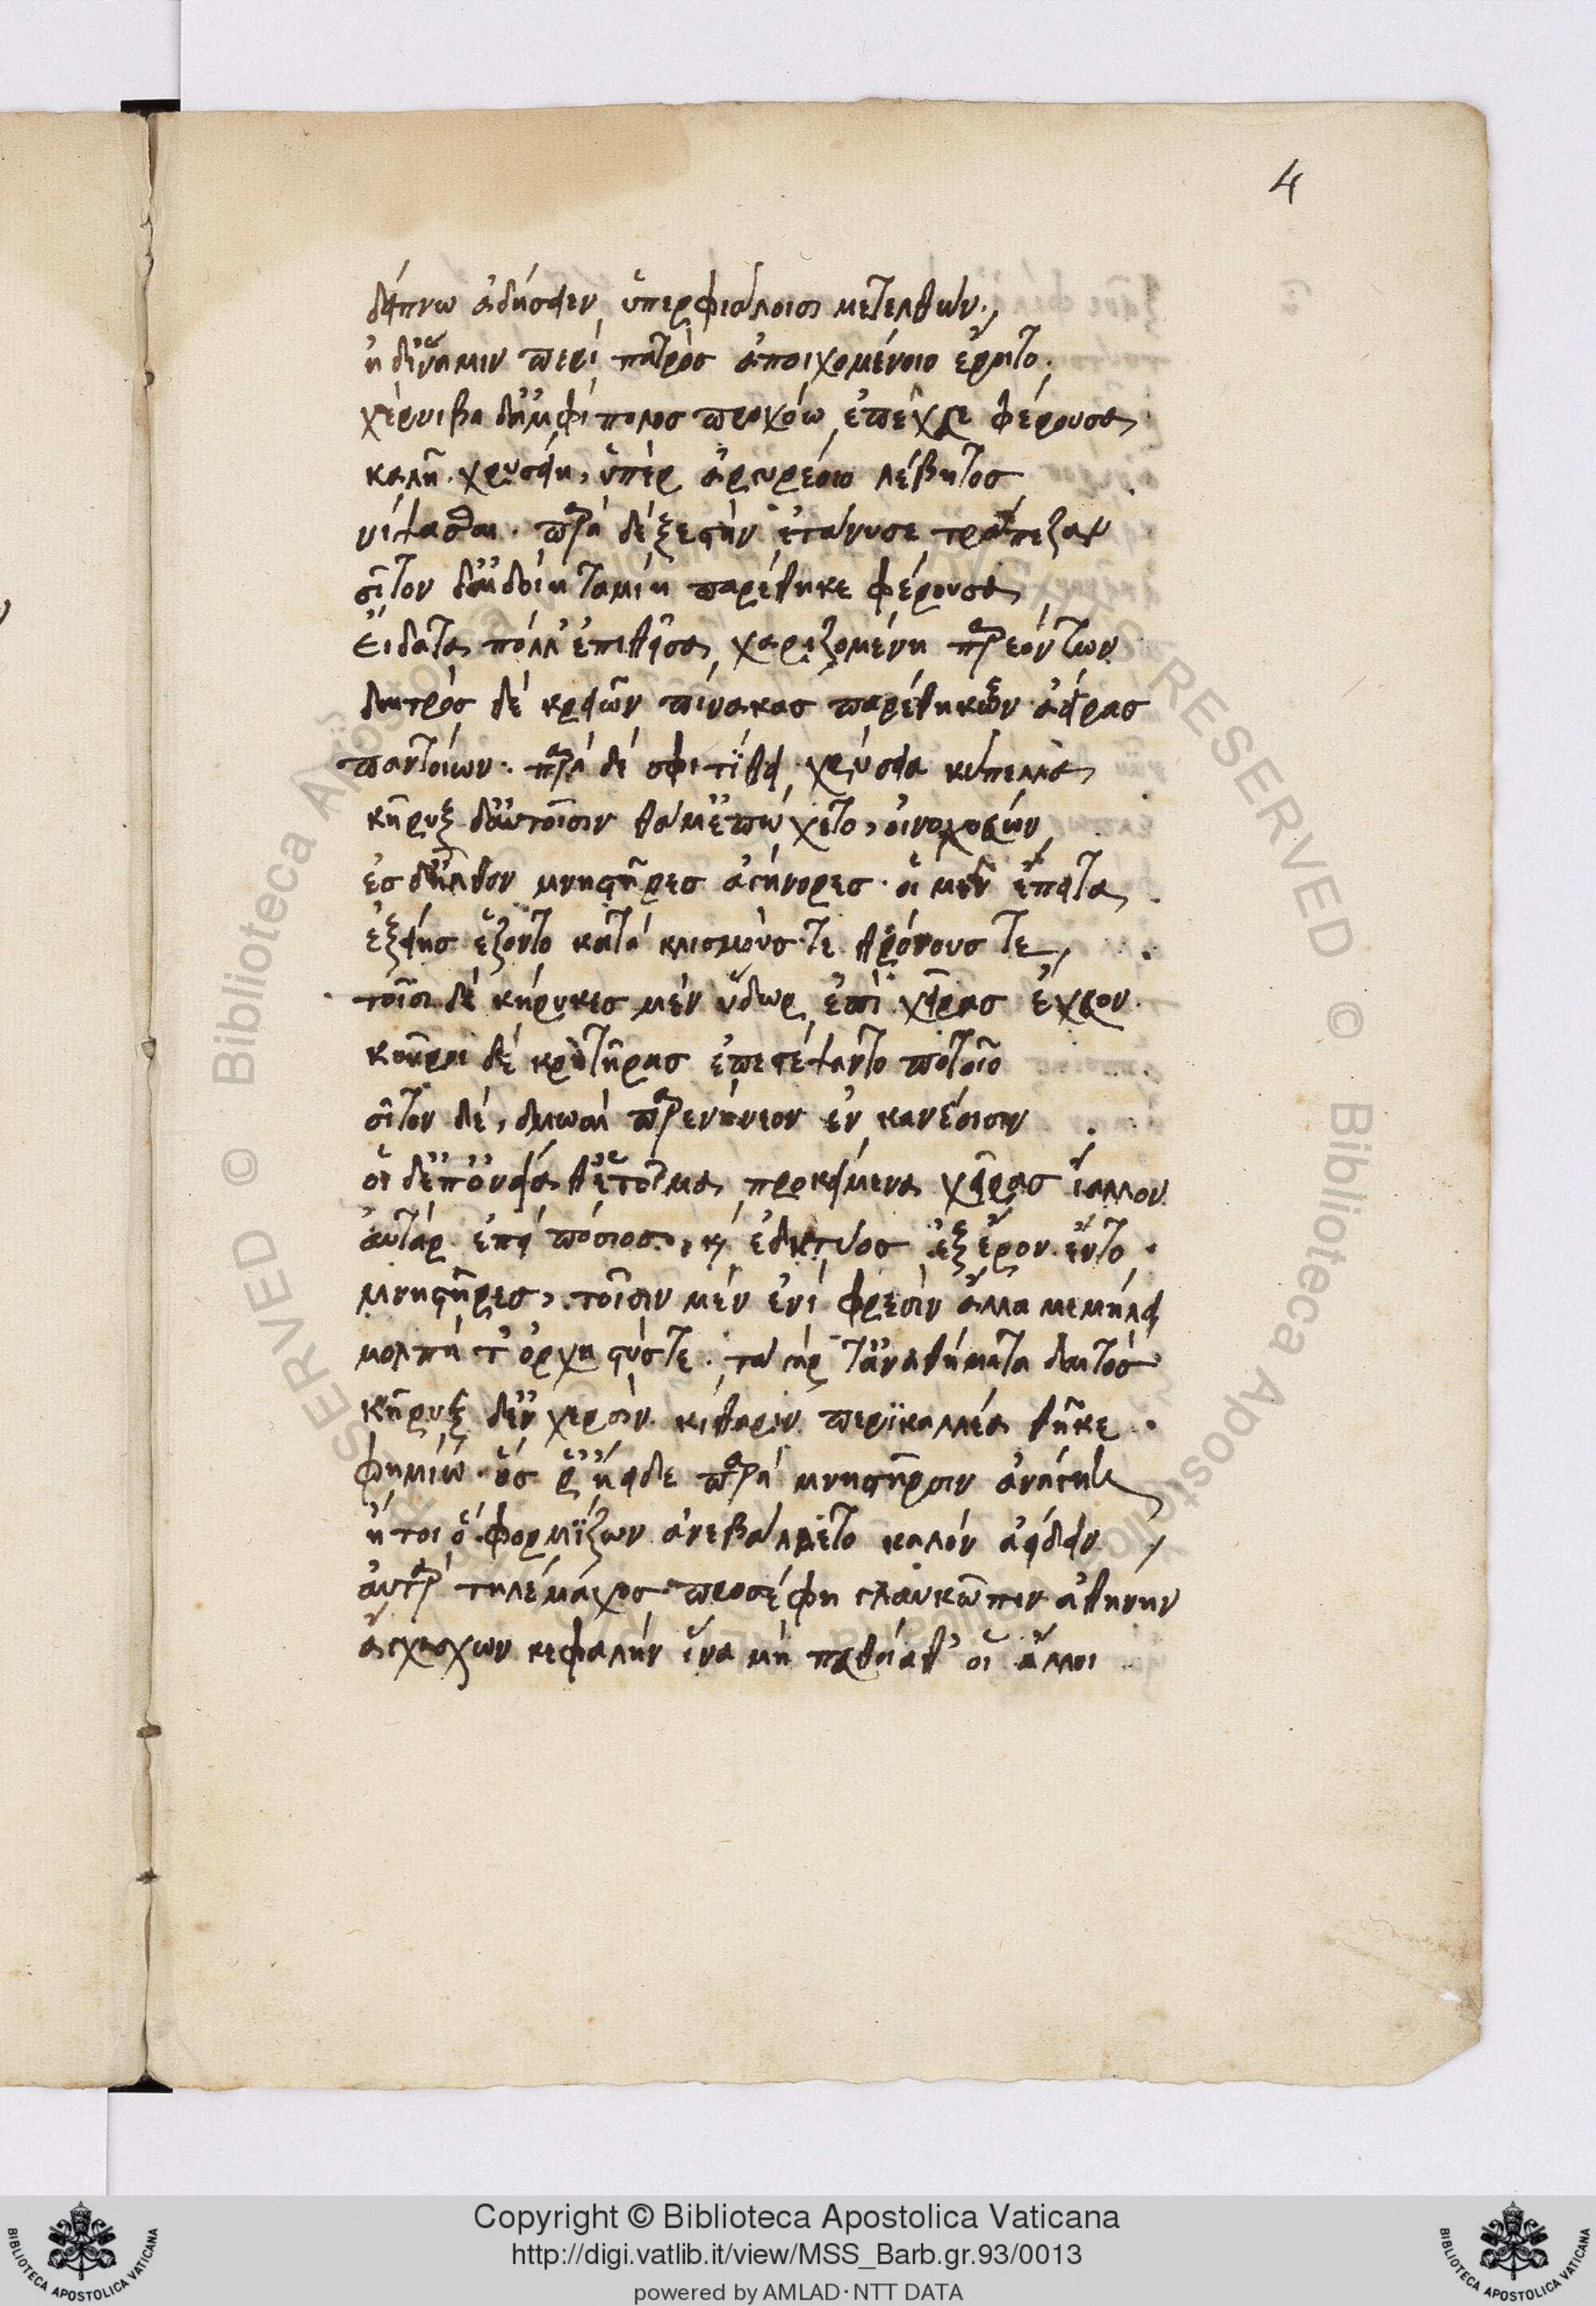 4
δείπνω ἀδήσειεν ὑπερφιάλοισι μετελθών.
ἠδ' ἵνα μιν περὶ πατρὸς ἀποιχομένοιο ἔροιτο.
χέρνιβα δ' ἀμφίπολος προχόω ἐπέχευε φέρουσα
καλῆ χρυσείη, ὑπὲρ ἀργυρέοιο λέβητος
νίψασθαι. παρὰ δὲ ξεστὴν ἐτάνυσε τράπεζαν
σῖτον δ' αἰδοίη ταμίη παρέθηκε φέρουσα
εἴδατα πόλλ' ἐπιθεῖσα χαριζομένη παρεόντων
δαιτρὸς δὲ κρειῶν πίνακας παρέθηκεν ἀείρας
παντοίων. παρὰ δέ σφι τίθει χρύσεια κύπελλα
κῆρυξ δ' αὐτοῖσιν θάμ' ἐπώχετο, οἰνοχοεύων
ἐς δ' ἦλθον μνηστῆρες ἀγήνορες. οἱ μὲν ἔπειτα
ἑξείης ἕζοντο κατὰ κλισμούς τε θρόνους τε
τοῖσι δὲ κήρυκες μὲν ὕδωρ ἐπὶ χεῖρας ἔχευον.
κοῦροι δὲ κρατῆρας ἐπεστέψαντο ποτοῖο
σῖτον δὲ, δμωαὶ παρενήνεον ἐν κανέοισιν
οἱ δ' ἐπ' ὀνείαθ' ἑτοῖμα προκείμενα χεῖρας ἴαλλον
αὐτὰρ ἐπεὶ πόσιος, κὶ ἐδητύος ἐξ ἔρον ἕντο.
μνηστῆρες, τοῖσιν μὲν ἐνὶ φρεσὶν ἄλλα μεμήλει
μολπή τ' ὀρχηστύς τε. τὰ γάρ τ' ἀναθήματα δαιτός
κῆρυξ δ' ἐν χερσὶν κίθαριν περϊκαλλέα θῆκε.
φημίω. ὅς ῥ' ἤειδε παρὰ μνηστῆρσιν ἀνάγκη
ἤτοι ὁ φορμίζων ἀνεβάλλετο καλὸν ἀείδειν
αὐτὰρ τηλέμαχος προσέφη γλαυκῶπιν ἀθήνην
ἄγχι σχὼν κεφαλὴν ἵνα μὴ πευθοίαθ' οἱ ἄλλοι
Copyright © Biblioteca Apostolica Vaticana
http://digi.vatlib.it/view/MSS_Barb.gr.93/0013
powered by AMLAD · NTT DATA